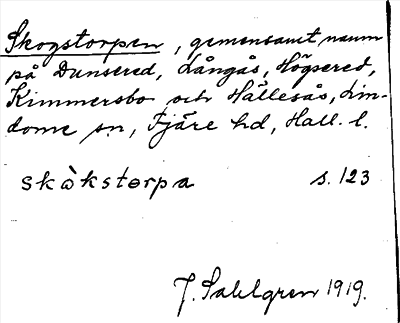 Skogstorpen, gemensamt namn
på Dunsered, Långås, Högsered,
Kimmersbo och Hällesås, Lin-
dome sn, Fjäre hd, Hall. l.
skàkstorpa s. 123
J. Sahlgren 1919.